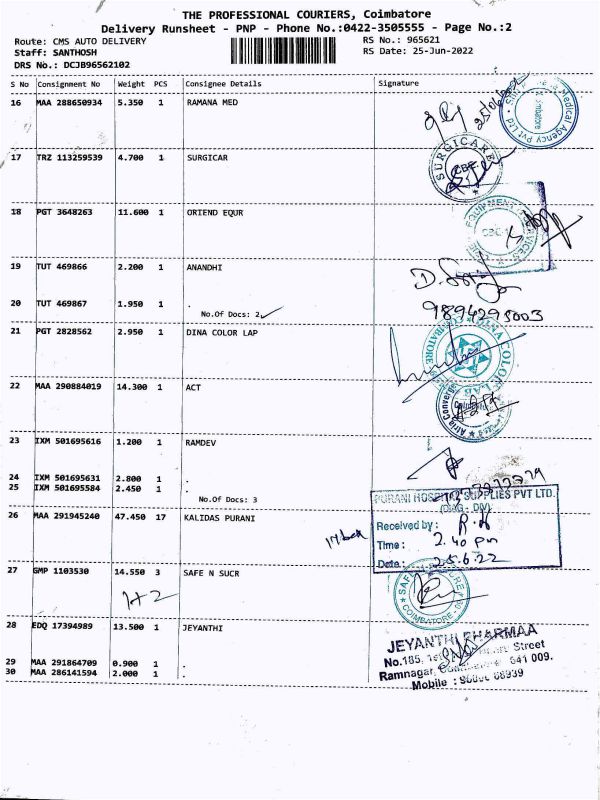 THE PROFESSIONAL COURIERS, Coimbatore
Delivery Runsheet - PNP - Phone No.:0422-3505555 - Page No.:2
Route: CMS AUTO DELIVERY
RS No.: 965621
Staff: SANTHOSH
RS Date: 25-Jun-2022
DRS No.: DCJB96562102
S No Consignment No Weight PCS Consignee Details Signature
16 MAA 288650934 5.350 1 RAMANA MED
Medical Agency Pvt Ltd
17 TRZ 113259539 4.700 1 SURGICAR
SURGICARE
CBE
18 PGT 3648263 11.600 1 ORIEND EQUR
EQUIPMENT SERVICES
19 TUT 469866 2.200 1 ANANDHI
20 TUT 469867 1.950 1 .
No.Of Docs: 2
9894295003
21 PGT 2828562 2.950 1 DINA COLOR LAP
DINA COLOR LAB
22 MAA 290884019 14.300 1 ACT
23 IXM 501695616 1.200 1 RAMDEV
24 IXM 501695631 2.800 1 .
25 IXM 501695584 2.450 1 .
No.Of Docs: 3
PURANI HOSPITAL SUPPLIES PVT LTD.
(DIAG - DIV)
26 MAA 291945240 47.450 17 KALIDAS PURANI
Received by: R.K
17 box
Time: 2.40 pm
Date: 25.6.22
27 GMP 1103530 14.550 3 SAFE N SUCR
1+2
COIMBATORE
28 EDQ 17394989 13.500 1 JEYANTHI
JEYANTHI PHARMAA
No.185, Street
29 MAA 291864709 0.900 1 .
Ramnagar, 641 009.
30 MAA 286141594 2.000 1 .
Mobile :